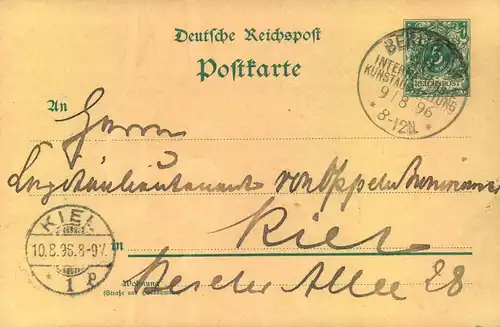 Deutsche Reichspost
Postkarte
BERLIN
INTERN
KUNSTAUSSTELLUNG
9/8 96
* 8-12N. *
5
REICHSPOST
An
Herrn
Kapitänlieutenant von Oppeln Bronikowski
Kiel
in
KIEL
10.8.96.8-9V.
* 1
Allee 28
Wohnung
(Straße und Hausnummer)